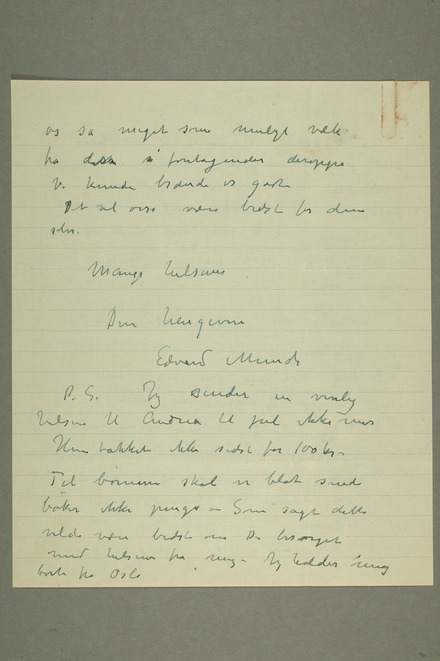 os så meget som muligt væk
fra disse foretagender deroppe
Vi kunde brænde os gale
Det vil osså være bedst for dem
selv.
Mange hilsener
Din hengivne
Edvard Munch
P.S. Jeg sender en venlig
hilsen til Andrea til jul ikke mer
Hun takket ikke sidst for 100 kr –
Til børnene skal vi blot sende
bøker ikke penge – Som sagt dette
vilde være bedst om De besørget
med hilsener fra mig – Jeg holder mig
borte fra Oslo